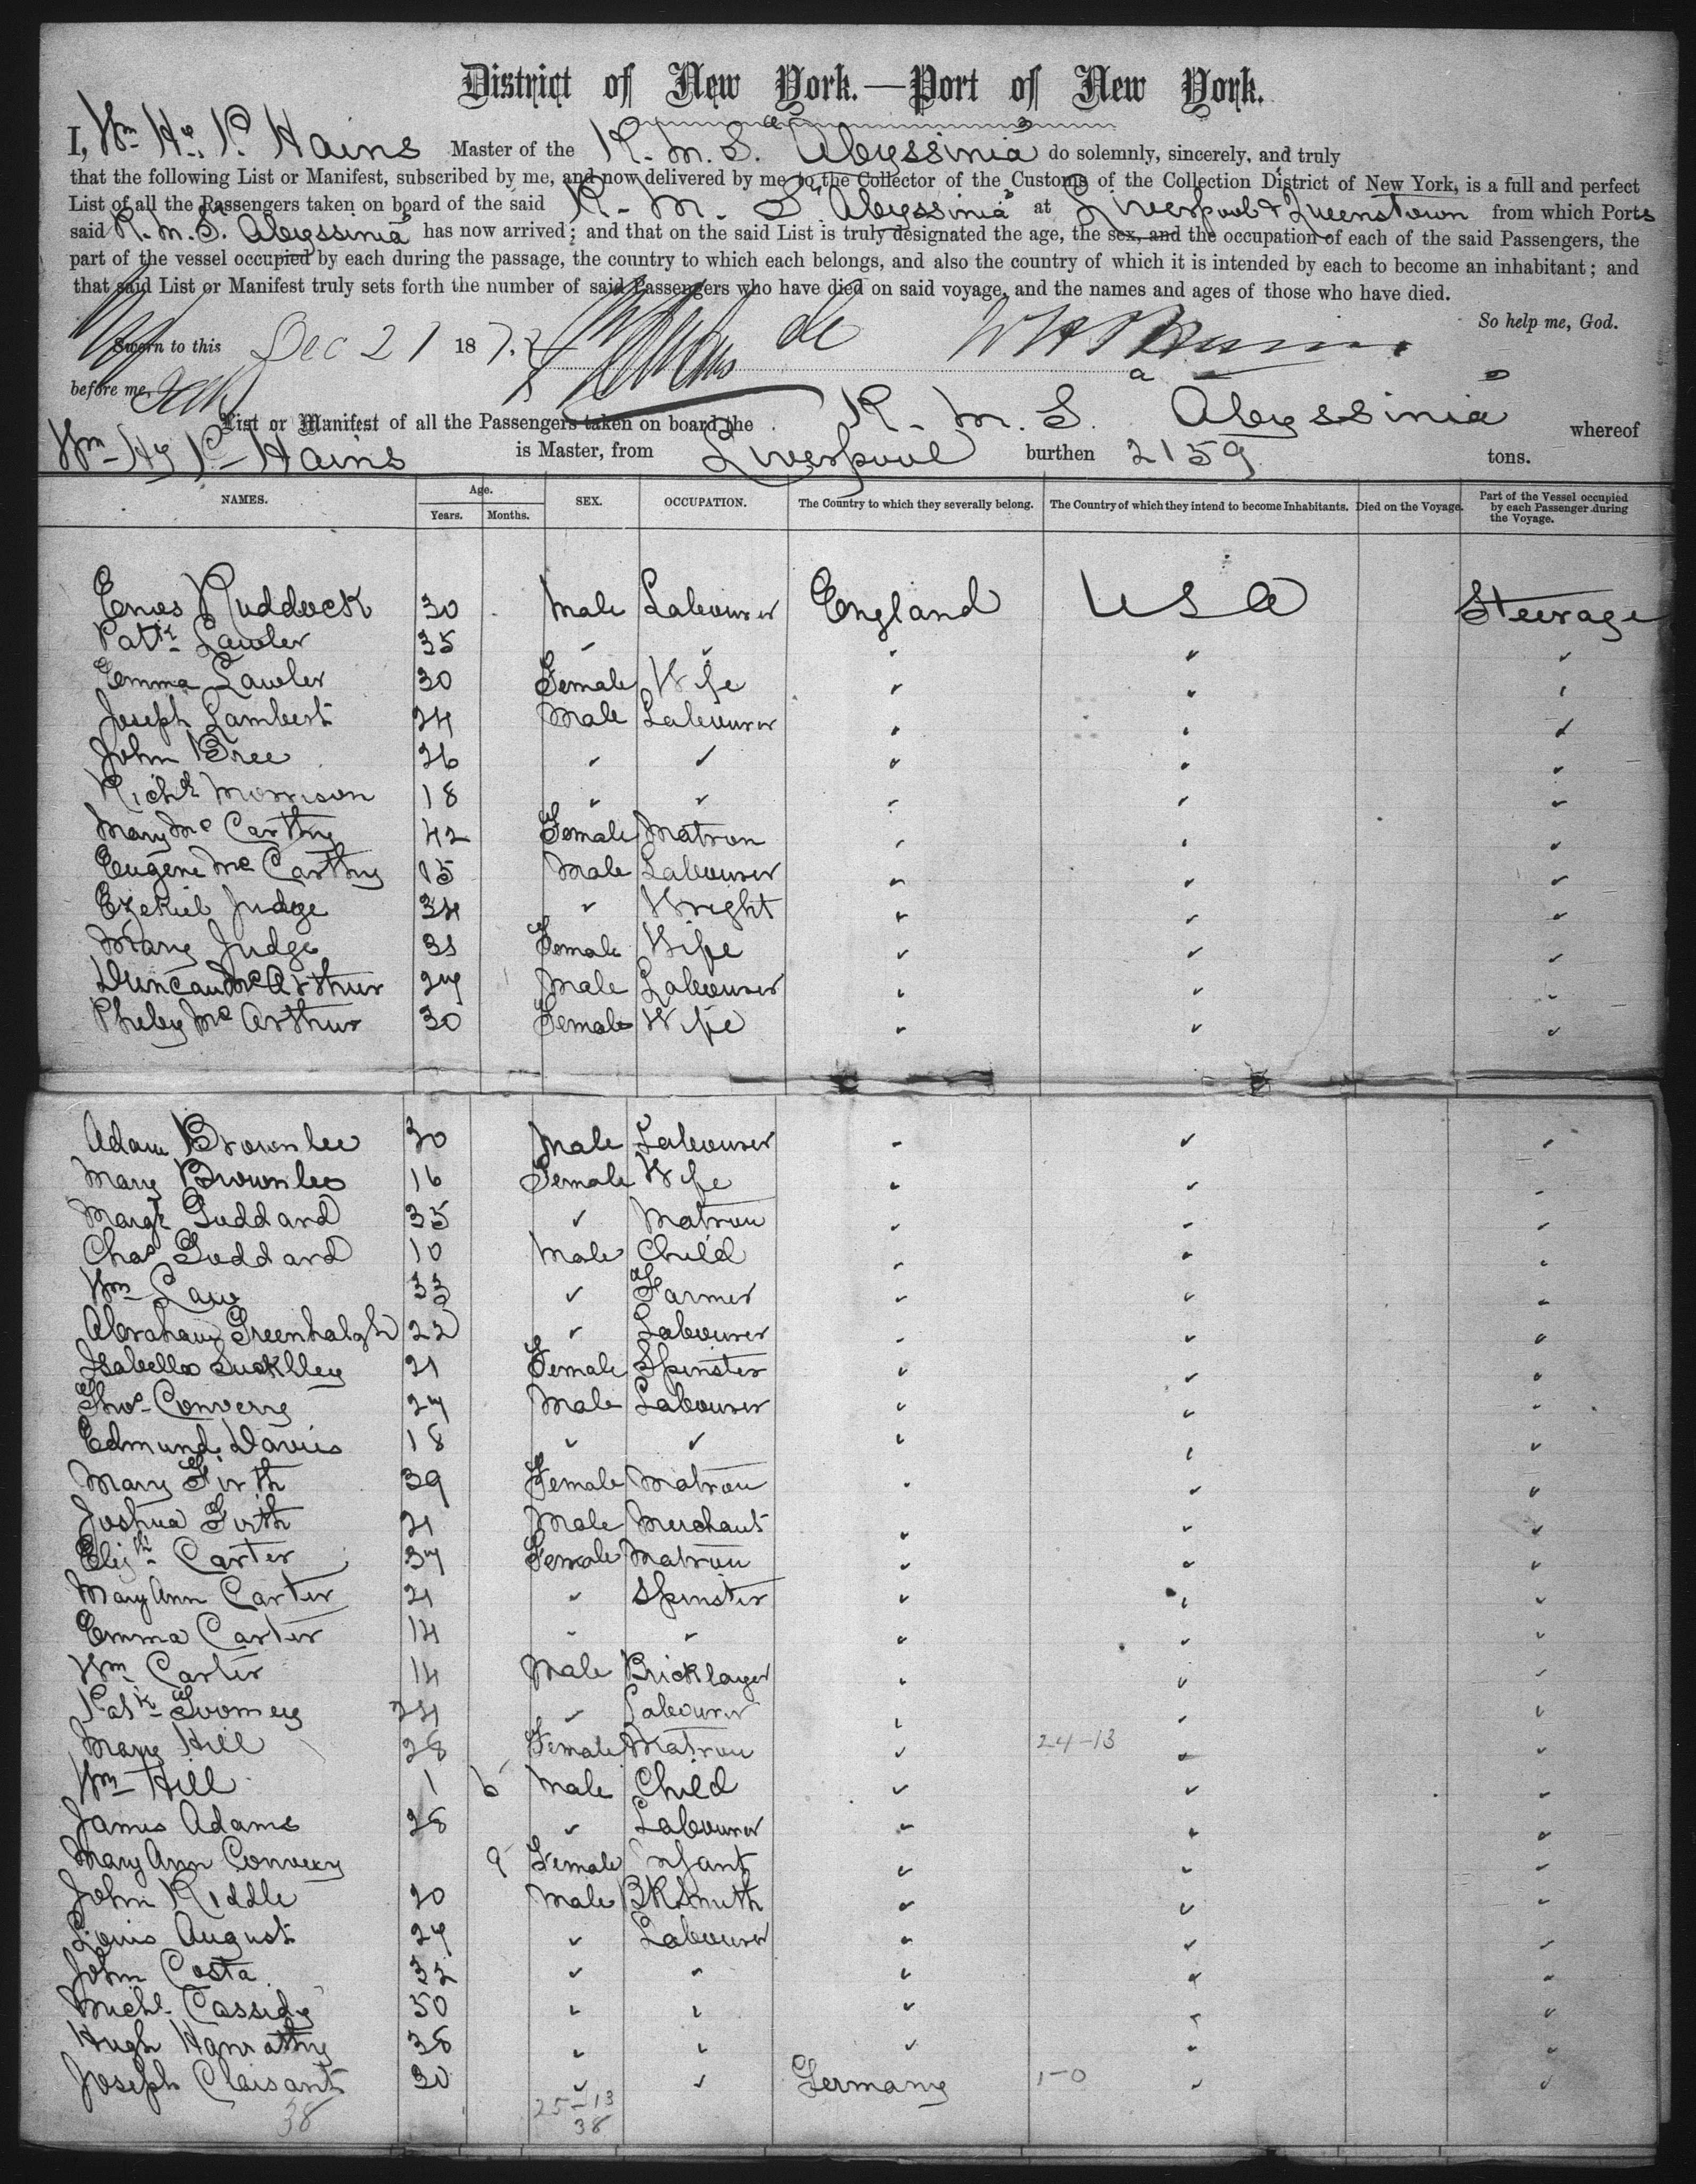 District of New York.—Port of New York.
I, Wm Hy. P. Hains Master of the R. M. S. "Abyssinia" do solemnly, sincerely, and truly
that the following List or Manifest, subscribed by me, and now delivered by me to the Collector of the Customs of the Collection District of New York, is a full and perfect
List of all the Passengers taken on board of the said R. M. S "Abyssinia" at Liverpool & Queenstown from which Ports
said R. M. S. Abyssinia has now arrived; and that on the said List is truly designated the age, the sex, and the occupation of each of the said Passengers, the
part of the vessel occupied by each during the passage, the country to which each belongs, and also the country of which it is intended by each to become an inhabitant; and
that said List or Manifest truly sets forth the number of said Passengers who have died on said voyage, and the names and ages of those who have died.
So help me, God.
Sworn to this Dec 21 187
before me,
List or Manifest of all the Passengers taken on board the R. M. S. Abyssinia whereof
Wm Hy P Hains is Master, from Liverpool burthen 2159 tons.
NAMES. Age. Years. Months. SEX. OCCUPATION. The Country to which they severally belong. The Country of which they intend to become Inhabitants. Died on the Voyage. Part of the Vessel occupied by each Passenger during the Voyage.
Enos Ruddock 30 Male Labourer England U S A Steerage
Patk Lawler 35 " "
Emma Lawler 30 Female Wife
Joseph Lambert 24 Male Labourer
John Bree 26 " "
Richd Morrison 18 " "
Mary Mc Carthy 42 Female Matron
Eugene Mc Carthy 15 Male Labourer
Ezekiel Judge 34 " Wright
Mary Judge 31 Female Wife
Duncan McArthur 27 Male Labourer
Pheby Mc Arthur 30 Female Wife
Adam Brownlee 30 Male Labourer
Mary Brownlee 16 Female Wife
Margt Goddard 35 " Matron
Chas Goddard 10 Male Child
Wm Law 33 " Farmer
Abraham Greenhalgh 22 " Labourer
Isabella 21 Female Spinster
Thos Convery 27 Male Labourer
Edmund Davies 18 " "
Mary Firth 39 Female Matron
Joshua Firth 21 Male Merchant
Elizth Carter 37 Female Matron
Mary Ann Carter 21 " Spinster
Emma Carter 14 " "
Wm Carter 14 Male Bricklayer
Patk Toomey 24 " Labourer
Mary Hill 28 Female Matron 24-13
Wm Hill 1 6 Male Child
James Adams 28 " Labourer
Mary Ann Convery 9 Female Infant
John Riddle 20 Male BKSmith
Louis August 27 " Labourer
John Costa 32 " "
Michl Cassidy 50 " "
Hugh Hanrathy 38 " "
Joseph Claisant 30 " " Germany 1-0
38 25-13
38